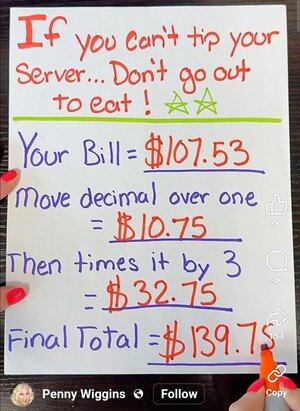 If you can't tip your
server... Don't go out
to eat!
Your Bill = $107.53
Move decimal over one
= $10.75
Then times it by 3
= $32.75
Final Total = $139.75
3K
9K
154
Penny Wiggins
Follow
Copy